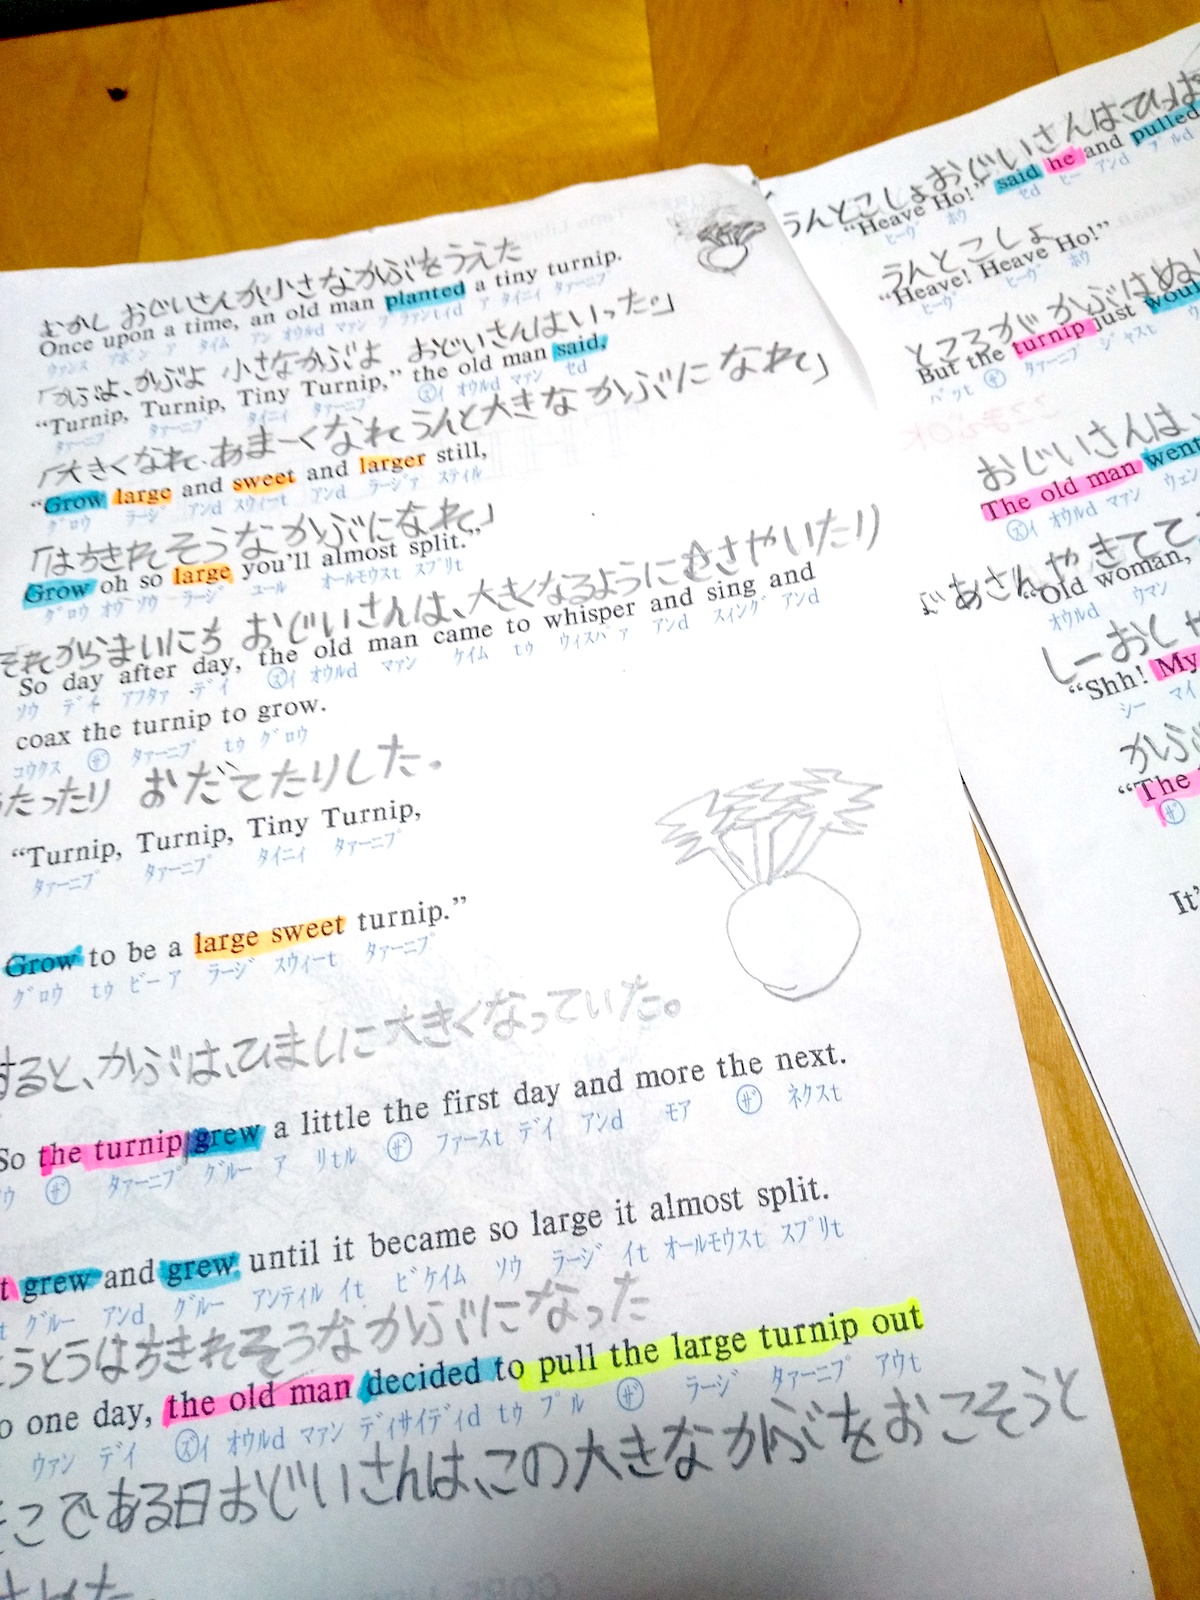 むかし おじいさんが小さなかぶをうえた
Once upon a time, an old man planted a tiny turnip.
ワァンス アポン ア タイム アン オウルd マァン プラァンtイd ア タイニイ タァーニプ
「かぶよ、かぶよ 小さなかぶよ おじいさんはいった。」
“Turnip, Turnip, Tiny Turnip,” the old man said,
タァーニプ タァーニプ タイニイ タァーニプ ズイ オウルd マァン セd
「大きくなれ、あまーくなれ うんと大きなかぶになれ」
“Grow large and sweet and larger still,
グロウ ラージ アンd スウィーt アンd ラージア スティル
「はちきれそうなかぶになれ」
Grow oh so large you’ll almost split.”
グロウ オウ ソウ ラージ ユール オールモウスt スプリt
それからまいにち おじいさんは、大きくなるようにささやいたり
So day after day, the old man came to whisper and sing and
ソウ デイ アフタァ デイ ズイ オウルd マァン ケイム tゥ ウィスパア アンd スィィング アンd
coax the turnip to grow.
コウクス ザ タァーニプ tゥ グロウ
うたったり おだてたりした。
“Turnip, Turnip, Tiny Turnip,
タァーニプ タァーニプ タイニイ タァーニプ
Grow to be a large sweet turnip.”
グロウ tゥ ビー ア ラージ スウィーt タァーニプ
すると、かぶは、ひましに大きくなっていた。
So the turnip grew a little the first day and more the next.
ウ ザ タァーニプ グルー ア リtル ザ ファースt デイ アンd モア ザ ネクスt
t grew and grew until it became so large it almost split.
t グルー アンd グルー アンティル イt ビケイム ソウ ラージ イt オールモウスt スプリt
とうとうはちきれそうなかぶになった
o one day, the old man decided to pull the large turnip out
ワァン デイ ズイ オウルd マァン ディサイディd tゥ プル ザ ラージ タァーニプ アウt
そこである日おじいさんは、この大きなかぶをおこそうと
うんとこしょおじいさんはひっぱ
“Heave Ho!” said he and pulled
ヒーヴ ホウ セd ヒー アンd プルd
うんとこしょ
“Heave! Heave Ho!”
ヒーヴ ヒーヴ ホウ
ところがかぶはぬ
But the turnip just woul
バッt ザ タァーニプ ジャスt ウ
おじいさんは
The old man went
ズイ オウルd マァン ウェン
ばあさんやきてて
“Old woman,
オウルd ウマン
しーおしゃ
“Shh! My
シー マイ
かぶ
“The
ザ
It’